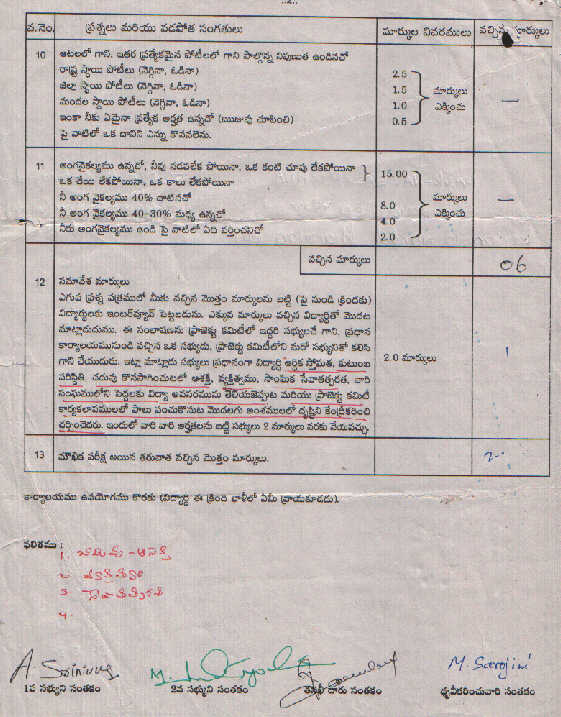 వ.నెం. ప్రశ్నలు మరియు వడపోత సంగతులు మార్కుల వివరములు వచ్చిన మార్కులు
10 ఆటలలో గాని, ఇతర ప్రత్యేకమైన పోటీలలో గాని పాల్గొన్న నిపుణత ఉండినచో
రాష్ట్ర స్థాయి పోటీలు (నెగ్గినా, ఓడినా) 2.5
జిల్లా స్థాయి పోటీలు (నెగ్గినా, ఓడినా) 1.5 మార్కులు
మండల స్థాయి పోటీలు (నెగ్గినా, ఓడినా) 1.0 ఎక్కించు —
ఇంకా నీకు ఏమైనా ప్రత్యేక అర్హత ఉన్నచో (ఋజువు చూపించి) 0.5
పై వాటిలో ఒక దానిని ఎన్ను కొనవలెను.
11 అంగవైకల్యము ఉన్నచో, నీవు నడవలేక పోయినా, ఒక కంటి చూపు లేకపోయినా
ఒక చేయి లేకపోయినా, ఒక కాలు లేకపోయినా 15.00
నీ అంగ వైకల్యము 40% దాటినచో 8.0 మార్కులు —
నీ అంగ వైకల్యము 40-30% మధ్య ఉన్నచో 4.0 ఎక్కించు
నీకు అంగవైకల్యము ఉండి పై వాటిలో ఏది వర్తించనిచో 2.0
వచ్చిన మార్కులు 06
12 సమావేశ మార్కులు
ఎగువ ప్రశ్న పత్రములో మీకు వచ్చిన మొత్తం మార్కులను బట్టి (పై నుండి క్రిందకు)
విద్యార్థులకు ఇంటర్వ్యూవ్ పెట్టబడును. ఎక్కువ మార్కులు వచ్చిన విద్యార్థితో మొదట
మాట్లాడుదుము. ఈ సంభాషణను ప్రాజెక్టు కమిటీలో ఇద్దరి సభ్యులచే గాని, ప్రధాన
కార్యాలయమునుండి వచ్చిన ఒక సభ్యుడు, ప్రాజెక్టు కమిటీలోని మరో సభ్యునితో కలిసి
గాని చేయుదురు. ఇట్లా మాట్లాడు సభ్యులు ప్రధానంగా విద్యార్థి ఆర్థిక స్తోమత, కుటుంబ 2.0 మార్కులు 1
పరిస్థితి, చదువు కొనసాగించుటలో ఆసక్తి, వ్యక్తిత్వము, సాంఘిక సేవాతత్పరత, వారి
సంఘములోని పెద్దలకు విద్యా అవసరమును తెలియజెప్పుట మరియు ప్రాజెక్ట్ కమిటీ
కార్యకలాపములలో పాలు పంచుకొనుట మొదలగు అంశములలో దృష్టిని కేంద్రీకరించి
చర్చించెదరు. ఇందులో వారి వారి అర్హతలను బట్టి సభ్యులు 2 మార్కులు వరకు వేయవచ్చు.
13 మౌఖిక పరీక్ష అయిన తరువాత వచ్చిన మొత్తం మార్కులు.
కార్యాలయము ఉపయోగము కొరకు (విద్యార్థి ఈ క్రింది ఖాళీలో ఏమీ వ్రాయకూడదు).
ఫలితము :
1.
2.
3
4.
A Srinivas M. Sarojini
1వ సభ్యుని సంతకం 2వ సభ్యుని సంతకం సంతకం ధృవీకరించువారి సంతకం